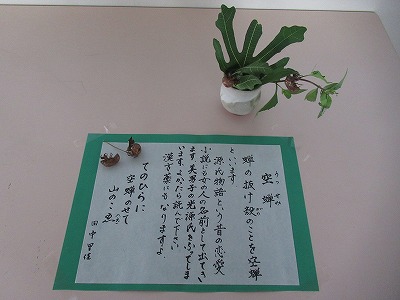 うつせみ
空蝉
蝉の抜け殻のことを空蝉
がら
といいます
源氏物語という昔の恋愛
小説にも女の人の名前として出てき
ます美男子の光源氏をふってしま
います よかったら読んで下さい
漢方薬にもなりますよ
てのひらに
空蝉のせて
山のこゑ